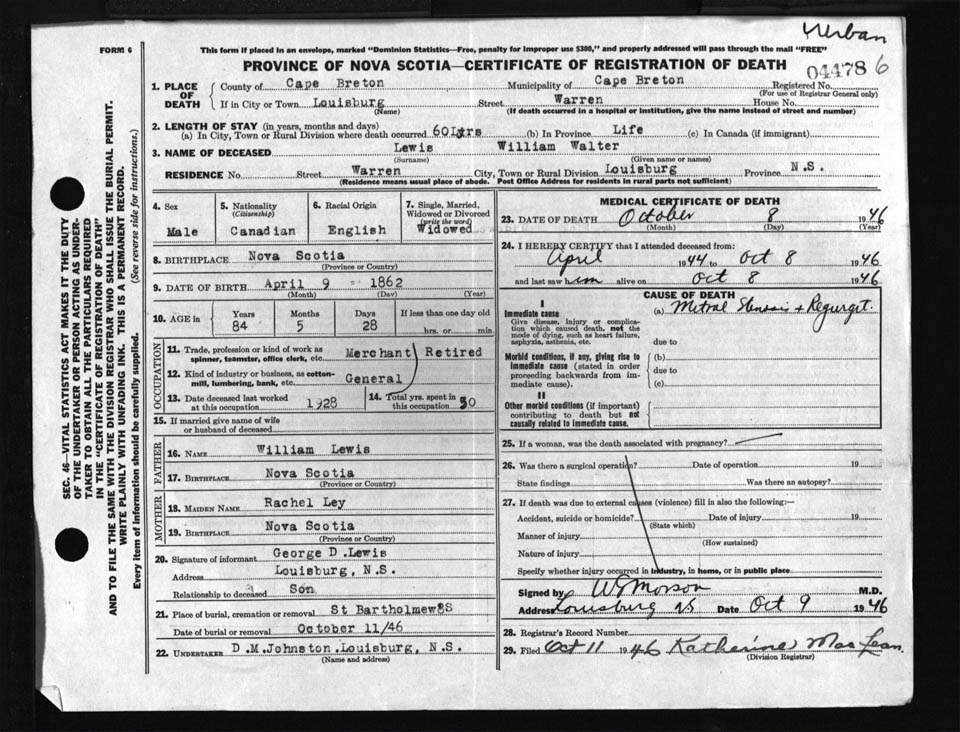 Urban
FORM 6
This form if placed in an envelope, marked "Dominion Statistics—Free, penalty for improper use $300," and properly addressed will pass through the mail "FREE"
PROVINCE OF NOVA SCOTIA—CERTIFICATE OF REGISTRATION OF DEATH
04478 6
1. PLACE OF DEATH
County of Cape Breton Municipality of Cape Breton Registered No.
(For use of Registrar General only)
If in City or Town Louisburg Street Warren House No.
(Name) (If death occurred in a hospital or institution, give the name instead of street and number)
2. LENGTH OF STAY (in years, months and days)
(a) In City, Town or Rural Division where death occurred 60 yrs (b) In Province Life (c) In Canada (if immigrant)
3. NAME OF DECEASED Lewis William Walter
(Surname) (Given name or names)
RESIDENCE No. Street Warren City, Town or Rural Division Louisburg Province N.S.
(Residence means usual place of abode. Post Office Address for residents in rural parts not sufficient)
4. Sex
Male
5. Nationality
(Citizenship)
Canadian
6. Racial Origin
English
7. Single, Married, Widowed or Divorced
(write the word)
Widowed
8. BIRTHPLACE Nova Scotia
(Province or Country)
9. DATE OF BIRTH April 9 1862
(Month) (Day) (Year)
10. AGE in
Years Months Days If less than one day old
84 5 28 hrs. or min.
OCCUPATION
11. Trade, profession or kind of work as spinner, teamster, office clerk, etc. Merchant Retired
12. Kind of industry or business, as cotton-mill, lumbering, bank, etc. General
13. Date deceased last worked at this occupation 1928
14. Total yrs. spent in this occupation 50
15. If married give name of wife or husband of deceased
FATHER
16. NAME William Lewis
17. BIRTHPLACE Nova Scotia
(Province or Country)
MOTHER
18. MAIDEN NAME Rachel Ley
19. BIRTHPLACE Nova Scotia
(Province or Country)
20. Signature of informant George D.Lewis
Address Louisburg, N.S.
Relationship to deceased Son
21. Place of burial, cremation or removal St Bartholmew8S
Date of burial or removal October 11/46
22. UNDERTAKER D.M.Johnston.Louisburg, N.S.
(Name and address)
MEDICAL CERTIFICATE OF DEATH
23. DATE OF DEATH October 8 1946
(Month) (Day) (Year)
24. I HEREBY CERTIFY that I attended deceased from:
April 1944 to Oct 8 1946
and last saw him alive on Oct 8 1946
CAUSE OF DEATH
I
Immediate cause
Give disease, injury or complication which caused death, not the mode of dying, such as heart failure, asphyxia, asthenia, etc.
(a) Mitral Stenosis + Regurgit.
due to
Morbid conditions, if any, giving rise to immediate cause (stated in order proceeding backwards from immediate cause).
(b)
due to
(c)
II
Other morbid conditions (if important) contributing to death but not causally related to immediate cause.
25. If a woman, was the death associated with pregnancy?
26. Was there a surgical operation? Date of operation 19
State findings Was there an autopsy?
27. If death was due to external causes (violence) fill in also the following:—
Accident, suicide or homicide? Date of injury 19
(State which)
Manner of injury
(How sustained)
Nature of injury
Specify whether injury occurred in industry, in home, or in public place
Signed by W Morson M.D.
Address Louisburg NS Date Oct 9 1946
28. Registrar's Record Number
29. Filed Oct 11 1946 Katherine MacLean
(Division Registrar)
SEC. 46—VITAL STATISTICS ACT MAKES IT THE DUTY
OF THE UNDERTAKER OR PERSON ACTING AS UNDER-
TAKER TO OBTAIN ALL THE PARTICULARS REQUIRED
IN THE "CERTIFICATE OF REGISTRATION OF DEATH"
AND TO FILE THE SAME WITH THE DIVISION REGISTRAR WHO SHALL ISSUE THE BURIAL PERMIT.
WRITE PLAINLY WITH UNFADING INK. THIS IS A PERMANENT RECORD.
Every item of information should be carefully supplied. (See reverse side for instructions.)